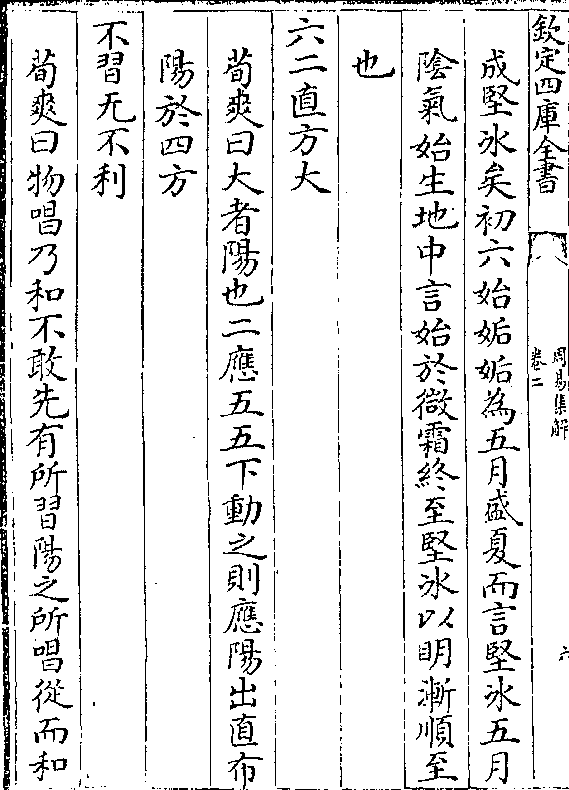 欽定四庫全書
周易集解
卷二
六
成堅冰矣初六始姤姤為五月盛夏而言堅冰五月
陰氣始生地中言始於微霜終至堅冰以明漸順至
也
六二直方大
荀爽曰大者陽也二應五五下動之則應陽出直布
陽於四方
不習无不利
荀爽曰物唱乃和不敢先有所習陽之所唱從而和